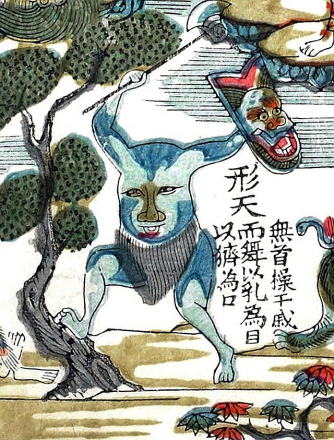 形天
無首操干戚
而舞以乳為目
以臍為口